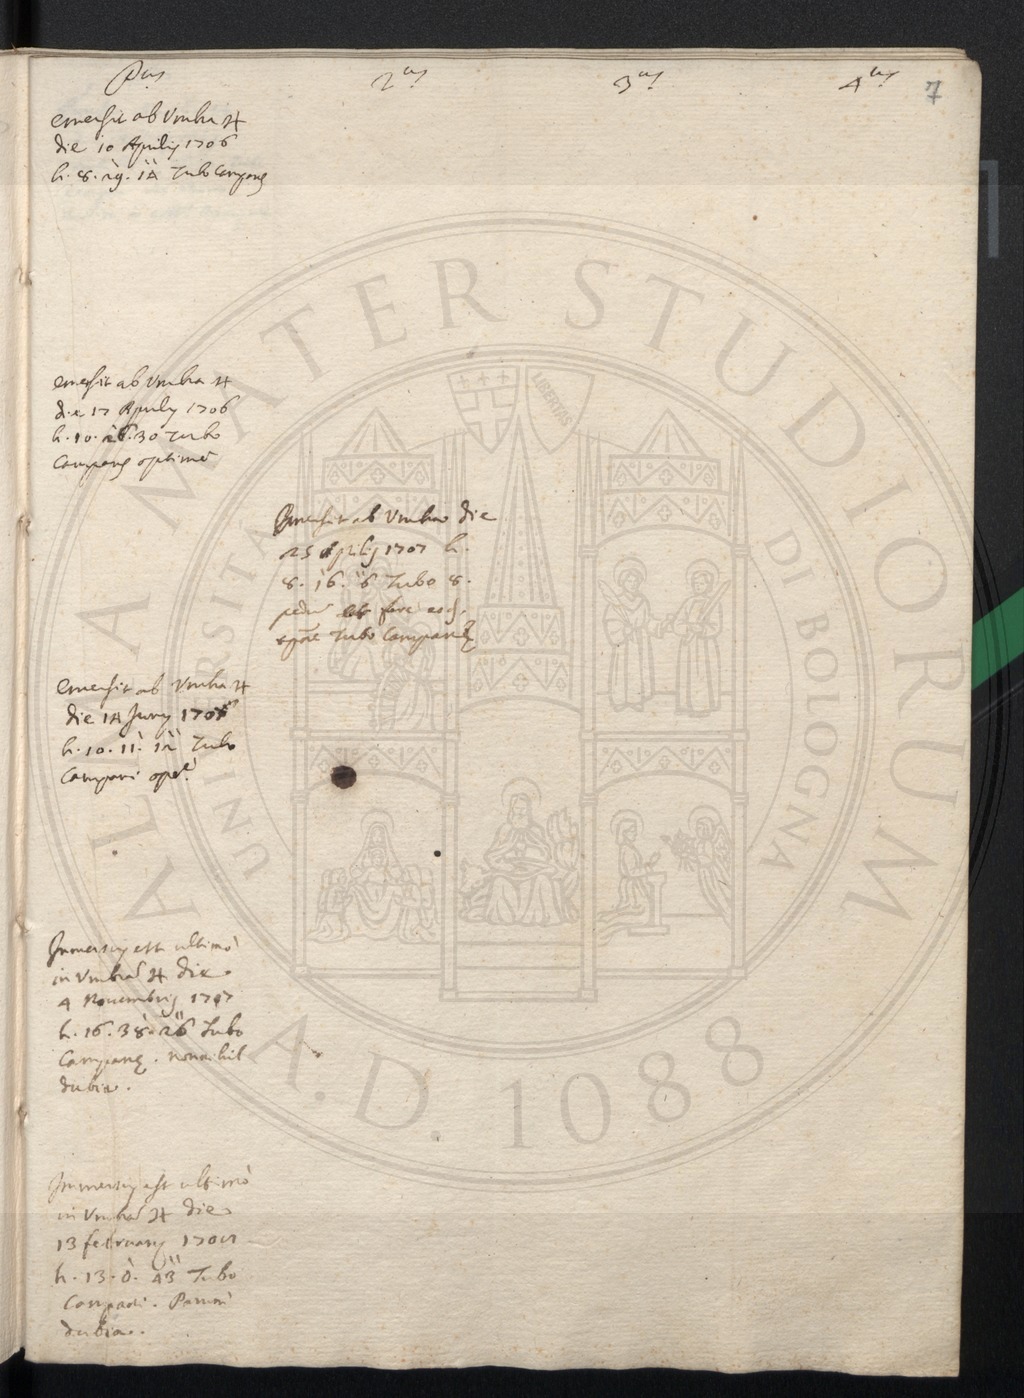 Pus 2us 3us 4us 7
emersit ab Vmbra ♃
die 10 Aprilis 1706
h. 8. 29. 14 Tubo Campanę
emersit ab Vmbra ♃
die 17 Aprilis 1706
h. 10. 26. 30 Tubo
Campanę optimè
Emersit ab Vmbra die
25 Aprilis 1707 h.
8. 16. 6 Tubo 8.
pedum et fere eod.
Tubo Campanę
Emersit ab Vmbra ♃
die 14 Juny
h. 10. 11. 12 Tubo
Campani
Immersus est ultimò
in Vmbra ♃ die
4 Nouembris 1707
h. 16. 38. 26 Tubo
Campanę. nonnihil
dubia.
Immersus est ultimò
in Vmbra ♃ die
13 february
h. 13. 0. 43 Tubo
Campani.
dubia.
ALMA MATER STUDIORUM
A.D. 1088
UNIVERSITÀ DI BOLOGNA
LIBERTAS